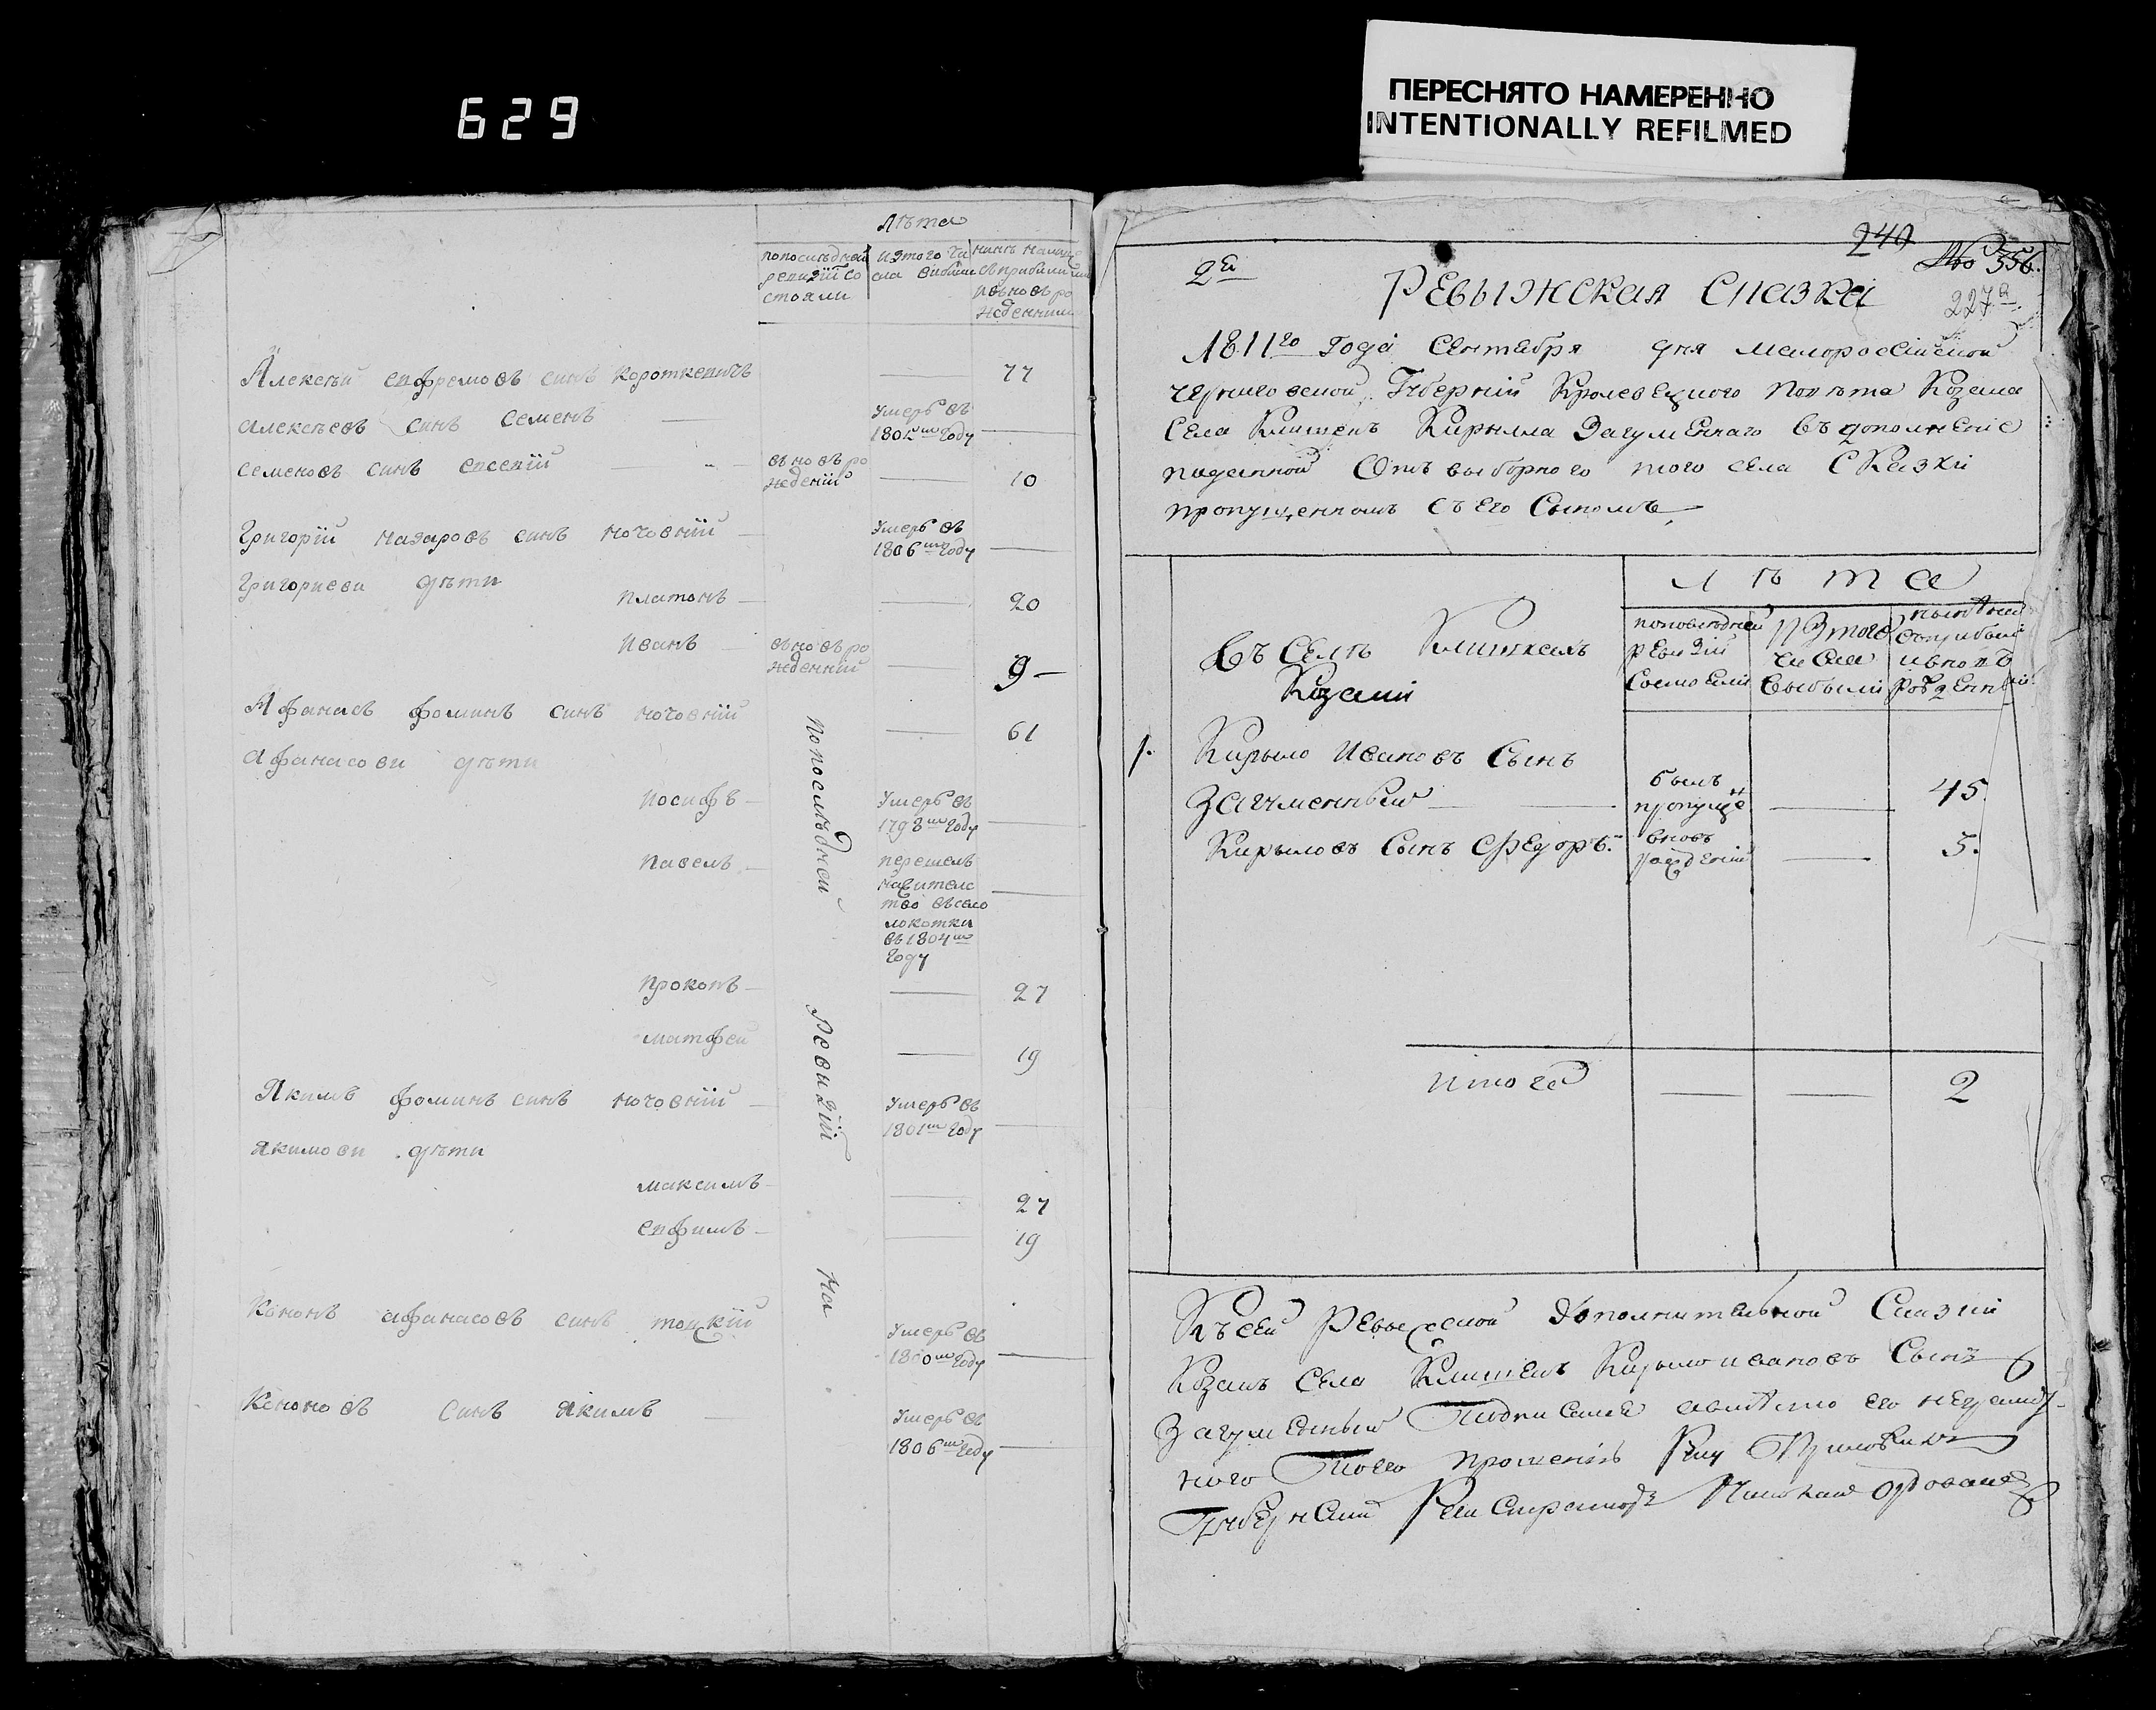 629
ПЕРЕСНЯТО НАМЕРЕННО
INTENTIONALLY REFILMED
Лѣта
попослѣдней ревизіи состояли
изтого числа выбили
Алексѣй евфремовъ синъ короткевичъ — 77
Алексѣевъ синъ Семенъ — Умеръ въ 1802мъ году —
Семеновъ синъ евсевій — вновъ рожденній — 10
Григорій назаровъ синъ ночовній — Умеръ въ 1806мъ году —
Григориеви дѣти
Платонъ — 20
Иванъ — вновъ рожденній — 9 —
Афанасъ фоминъ синъ ночовній — 61
Афанасови дѣти
Иосифъ — Умеръ въ 1798мъ году —
Павелъ — перешелъ нажителство въ село локотки въ 1804мъ году —
Прокопъ — 27
матфей — 19
Якимъ фоминъ синъ ночовній — Умеръ въ 1801мъ году —
Якимови дѣти
максимъ — 27
евфимъ — 19
Кононъ афанасовъ синъ — Умеръ въ 1800мъ году —
Кононовъ Синъ Якимъ — Умеръ въ 1806мъ году —
попослѣдней Ревизіи
249
356.
227
2я
Ревыжская Сказка
1811го года Сентября дня малоросейской
черниговской Губерніи Кролевецкого повѣта Козака
Села Клишекъ Кирылла Загуменнаго въ дополненіе
поданной Отъ выборного того села Сказки
пропущенномъ съ его Сыномъ
Лѣта
Въ Селѣ Клишкахъ
Козаки
попослѣдней ревизіи Состояли
изтого числа выбыли
1. Кирыло Ивановъ Сынъ
Загуменный — былъ пропущен — 45.
Кирыловъ Сынъ Федоръ — вновъ рожденній — 5.
Итого — — 2
Къ сей Ревыжской дополнительной Сказки
Козакъ Села Клишекъ Кирыло ивановъ Сынъ
Загуменный Подписался авмѣсто его неграмот-
ного Поего прошенію
Губернский Регистраторъ